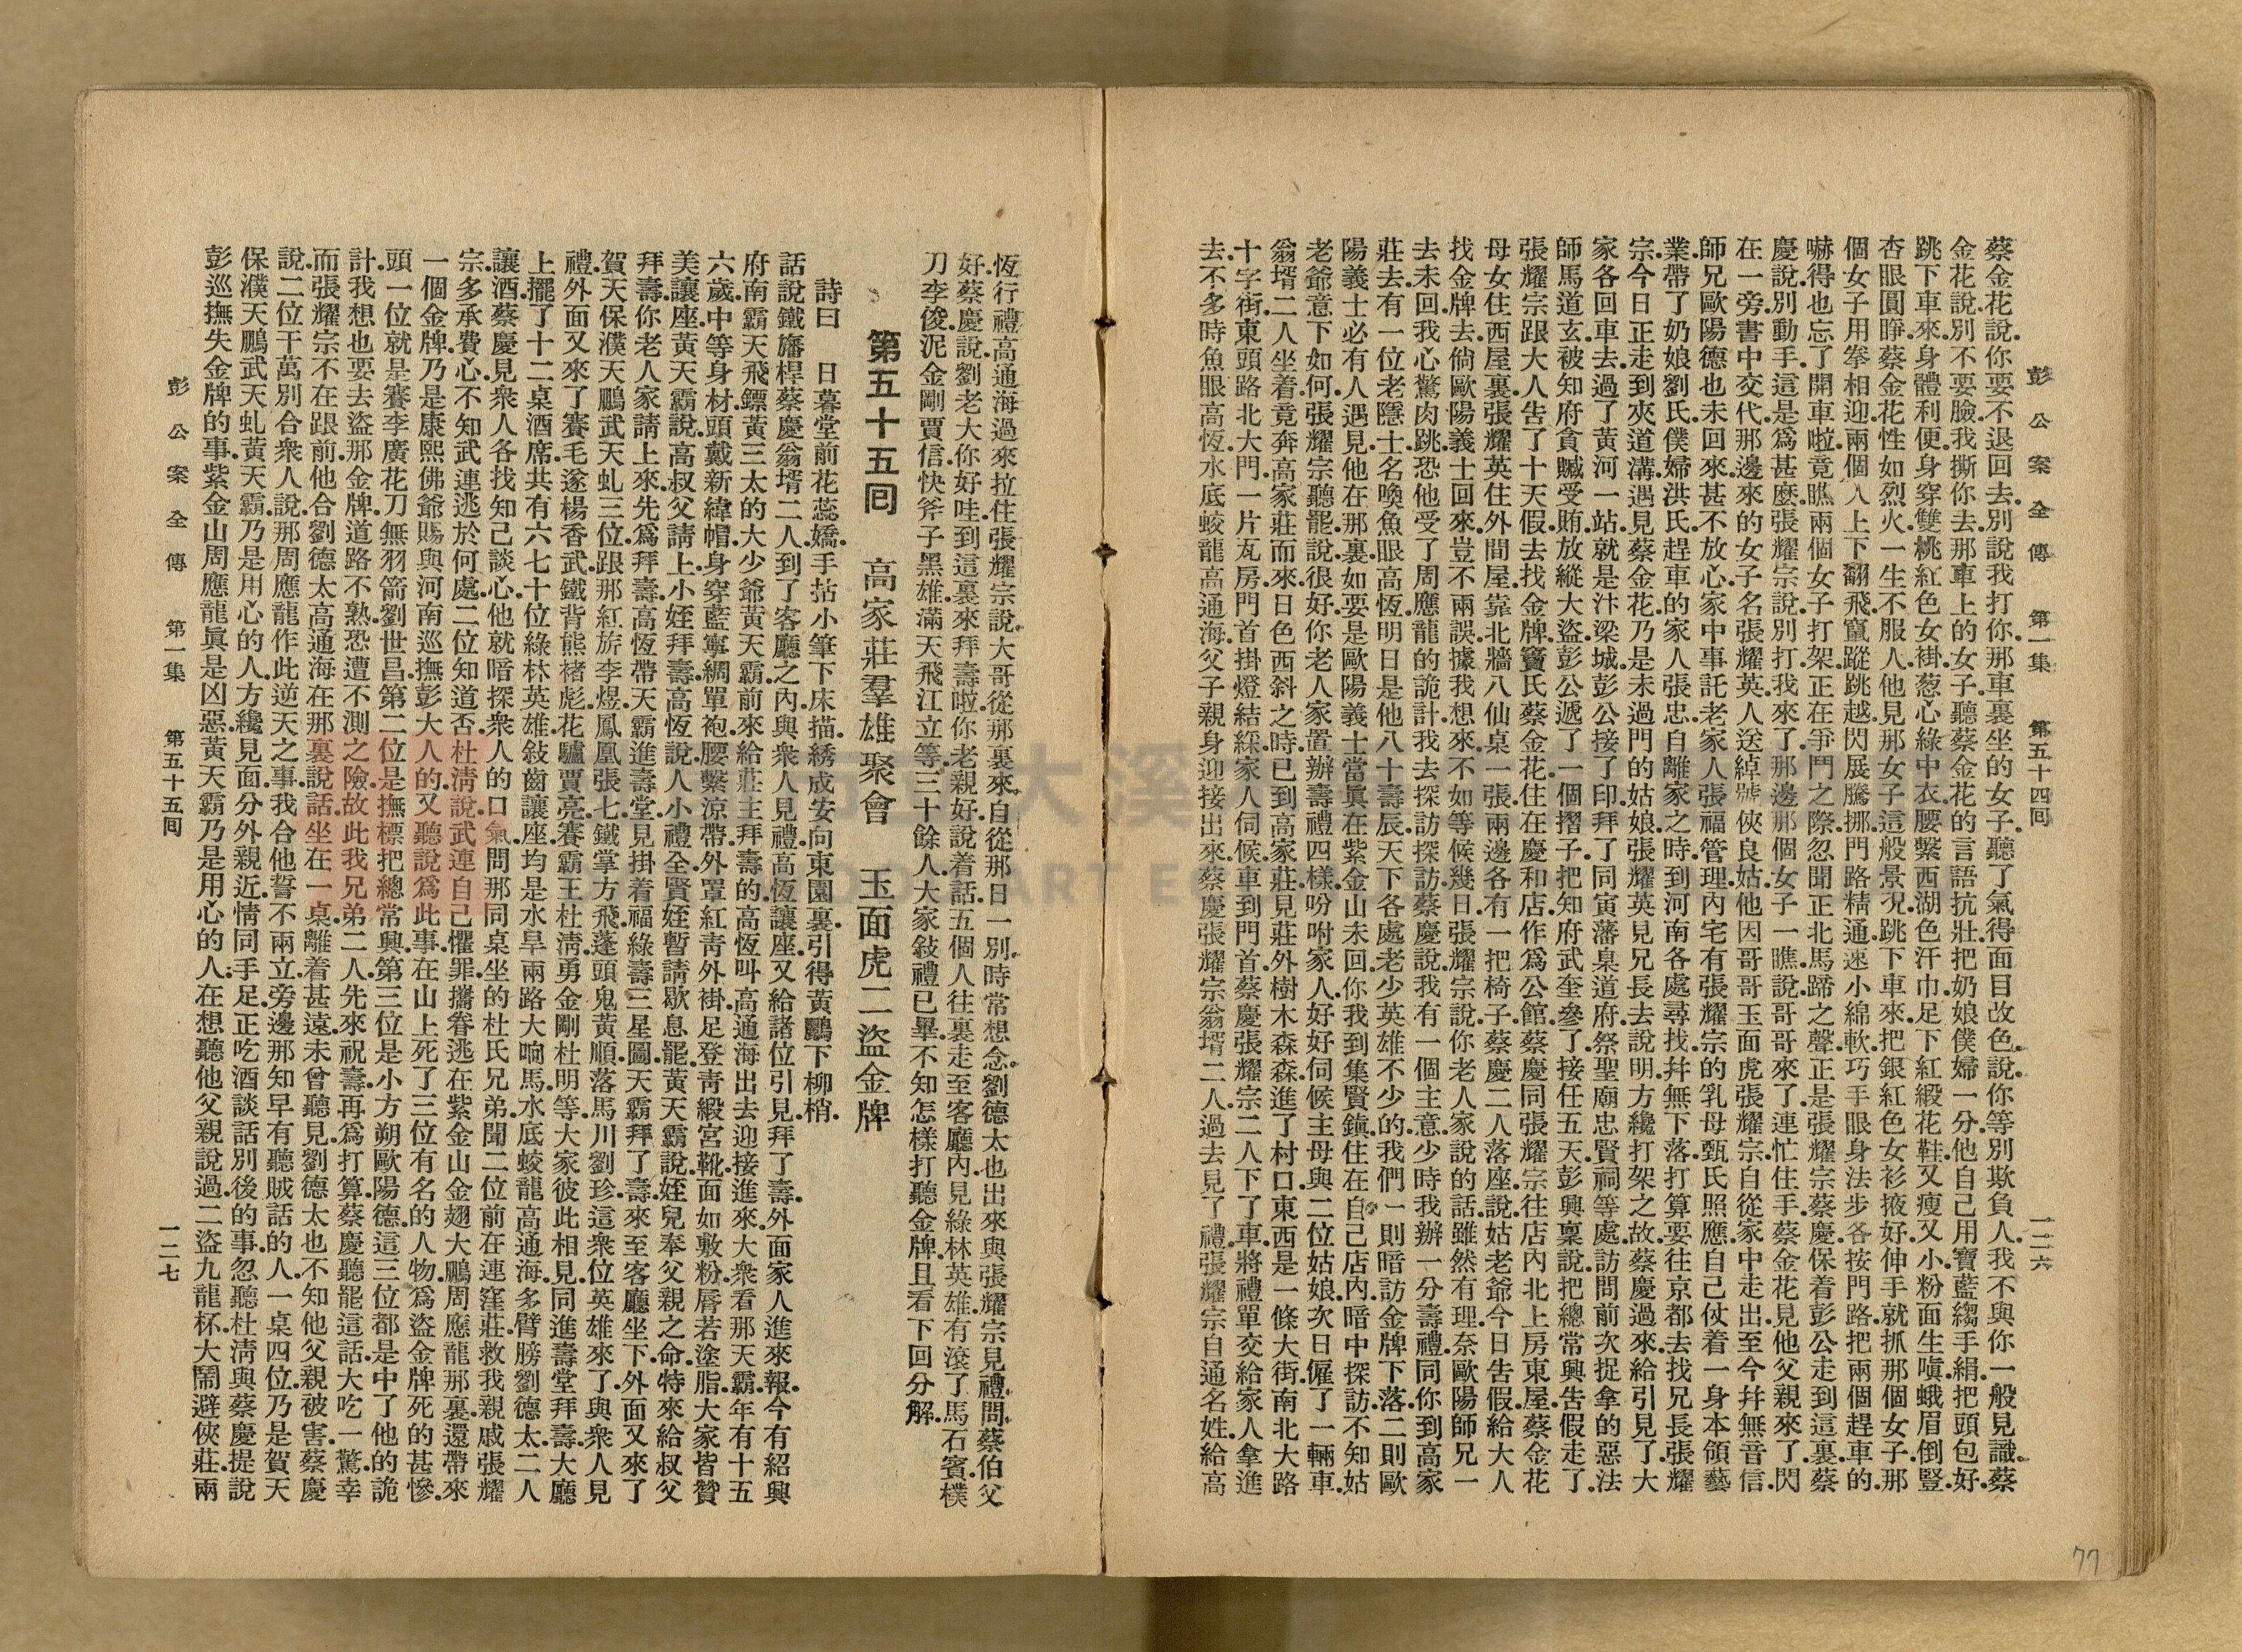 彭公案全傳 第一集 第五十四囘 一二六
蔡金花說.你要不退回去.別說我打你.那車裏坐的女子.聽了氣得面目改色.說你等別欺負人.我不與你一般見識.蔡
金花說.別不要臉.我撕你去.那車上的女子.聽蔡金花的言語抗壯.把奶娘僕婦一分.他自己用寶藍縐手絹.把頭包好.
跳下車來.身體利便.身穿雙桃紅色女褂.葱心綠中衣.腰繫西湖色汗巾.足下紅緞花鞋.又瘦又小.粉面生嗔.蛾眉倒豎.
杏眼圓睜.蔡金花性如烈火.一生不服人.他見那女子.這般景况.跳下車來.把銀紅色女衫掖好.伸手就抓那個女子.那
個女子用拳相迎.兩個人上下翻飛.竄蹤跳越.閃展騰挪.門路精通.速小綿軟巧.手眼身法步.各按門路.把兩個趕車的.
嚇得也忘了開車啦.竟瞧兩個女子打架.正在爭鬥之際.忽聞正北馬蹄之聲.正是張耀宗蔡慶.保着彭公走到這裏.蔡
慶說.別動手.這是爲甚麼.張耀宗說.別打.我來了.那邊那個女子一瞧.說哥哥來了.連忙住手.蔡金花見他父親來了.閃
在一旁.書中交代.那邊來的女子.名張耀英.人送綽號俠良姑.他因哥哥玉面虎張耀宗.自從家中走出.至今幷無音信.
師兄歐陽德也未回來.甚不放心.家中事託老家人張福管理.內宅有張耀宗的乳母甄氏照應.自己仗着一身本領藝
業.帶了奶娘劉氏.僕婦洪氏.趕車的家人張忠.自離家之時.到河南各處尋找.幷無下落.打算要往京都去找兄長張耀
宗.今日正走到夾道溝.遇見蔡金花.乃是未過門的姑娘.張耀英見兄長去說明.方纔打架之故.蔡慶過來.給引見了.大
家各回車去.過了黃河一站.就是汴梁城.彭公接了印.拜了同寅藩臬道府.祭聖廟忠賢祠等處.訪問前次捉拿的惡法
師馬道玄.被知府貪贓受賄.放縱大盜.彭公遞了一個摺子.把知府武奎參了.接任五天.彭興稟說.把總常興告假走了.
張耀宗跟大人告了十天假.去找金牌.竇氏蔡金花.住在慶和店.作爲公館.蔡慶同張耀宗往店內北上房東屋.蔡金花
母女住西屋裏.張耀英住外間屋.靠北牆八仙桌一張.兩邊各有一把椅子.蔡慶二人落座.說姑老爺今日告假.給大人
找金牌去.倘歐陽義士回來.豈不兩誤.據我想來.不如等候幾日.張耀宗說.你老人家說的話.雖然有理.奈歐陽師兄一
去未回.我心驚肉跳.恐他受了周應龍的詭計.我去探訪探訪.蔡慶說.我有一個主意.少時我辦一分壽禮.同你到高家
莊去.有一位老隱士.名喚魚眼高恆.明日是他八十壽辰.天下各處老少英雄不少的.我們一則暗訪金牌下落.二則歐
陽義士必有人遇見.他在那裏.如要是歐陽義士當眞在紫金山未回.你我到集賢鎮.住在自己店內.暗中探訪.不知姑
老爺意下如何.張耀宗聽罷.說很好.你老人家置辦壽禮四樣.吩咐家人.好好伺候主母與二位姑娘.次日僱了一輛車.
翁壻二人坐着.竟奔高家莊而來.日色西斜之時.已到高家莊.見莊外樹木森森.進了村口.東西是一條大街.南北大路
十字街.東頭路北大門.一片瓦房.門首掛燈結綵.家人伺候.車到門首.蔡慶張耀宗二人下了車.將禮單交給家人拿進
去.不多時.魚眼高恆.水底蛟龍高通海.父子親身迎接出來.蔡慶張耀宗翁壻二人.過去見了禮.張耀宗自通名姓.給高
77
恆行禮.高通海過來拉住張耀宗說.大哥從那裏來.自從那日一別.時常想念.劉德太也出來.與張耀宗見禮.問蔡伯父
好.蔡慶說.劉老大你好哇.到這裏來拜壽啦.你老親好.說着話.五個人往裏走.至客廳內.見綠林英雄.有滾了馬石賓.樸
刀李俊.泥金剛賈信.快斧子黑雄.滿天飛江立等.三十餘人.大家敍禮已畢.不知怎樣打聽金牌.且看下回分解.
第五十五囘 高家莊羣雄聚會 玉面虎二盜金牌
詩曰 日暮堂前花蕊嬌.手拈小筆下床描.綉成安向東園裏.引得黃鸝下柳梢.
話說鐵旛桿蔡慶翁壻二人.到了客廳之內.與衆人見禮.高恆讓座.又給諸位引見.拜了壽.外面家人進來報.今有紹興
府南霸天飛鏢黃三太的大少爺黃天霸.前來給莊主拜壽的.高恆叫高通海出去迎接進來.大衆看那天霸.年有十五
六歲.中等身材.頭戴新緯帽.身穿藍寧綢單袍.腰繫涼帶.外罩紅靑外褂.足登靑緞宮靴.面如敷粉.唇若塗脂.大家皆贊
美.讓座.黃天霸說.高叔父請上.小姪拜壽.高恆說.人小禮全.賢姪暫請歇息罷.黃天霸說.姪兒奉父親之命.特來給叔父
拜壽.你老人家請上來.先爲拜壽.高恆帶天霸進壽堂.見掛着福綠壽三星圖.天霸拜了壽.來至客廳坐下.外面又來了
賀天保濮天鵬武天虬三位.跟那紅旂李煜.鳳凰張七.鐵掌方飛.蓬頭鬼黃順.落馬川劉珍.這衆位英雄來了.與衆人見
禮.外面又來了賽毛遂楊香武.鐵背熊褚彪.花驢賈亮.賽霸王杜淸.勇金剛杜明等.大家彼此相見.同進壽堂拜壽.大廳
上擺了十二桌酒席.共有六七十位綠林英雄.敍齒讓座.均是水旱兩路大响馬.水底蛟龍高通海.多臂膀劉德太.二人
讓酒.蔡慶見衆人各找知己談心.他就暗探衆人的口氣.問那同桌坐的杜氏兄弟.聞二位前在連窪莊救我親戚張耀
宗.多承費心.不知武連逃於何處.二位知道否.杜淸說.武連自己懼罪.攜眷逃在紫金山金翅大鵬周應龍那裏.還帶來
一個金牌.乃是康熙佛爺賜與河南巡撫彭大人的.又聽說爲此事.在山上死了三位有名的人物.爲盜金牌死的甚慘.
頭一位就是賽李廣花刀無羽箭劉世昌.第二位是撫標把總常興.第三位是小方朔歐陽德.這三位都是中了他的詭
計.我想也要去盜那金牌.道路不熟.恐遭不測之險.故此我兄弟二人先來祝壽.再爲打算.蔡慶聽罷這話.大吃一驚.幸
而張耀宗不在跟前.他合劉德太高通海在那裏說話.坐在一桌.離着甚遠.未曾聽見.劉德太也不知他父親被害.蔡慶
說.二位千萬別合衆人說.那周應龍作此逆天之事.我合他誓不兩立.旁邊那知早有聽賊話的人.一桌四位.乃是賀天
保濮天鵬武天虬黃天霸.乃是用心的人.方纔見面.分外親近.情同手足.正吃酒談話別後的事.忽聽杜淸與蔡慶提說
彭巡撫失金牌的事.紫金山周應龍眞是凶惡.黃天霸乃是用心的人.在想聽他父親說過.二盜九龍杯.大鬧避俠莊.兩
彭公案全傳 第一集 第五十五囘 一二七